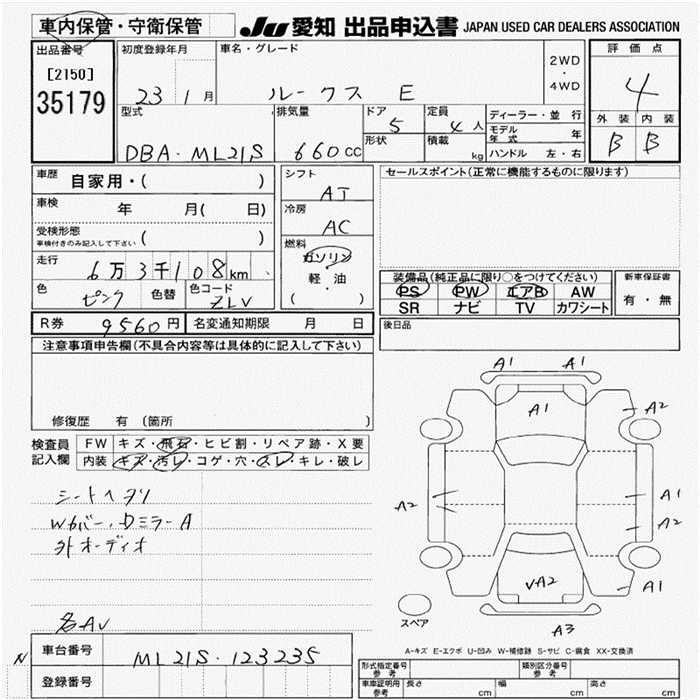 車内保管・守衛保管
JU 愛知 出品申込書 JAPAN USED CAR DEALERS ASSOCIATION
出品番号
[2150]
35179
初度登録年月
23 1月
車名・グレード
ルークス E
2WD
・
4WD
評価点
4
型式
DBA・ML21S
排気量
660cc
ドア
5
形状
定員
4人
積載
kg
ディーラー・並行
モデル年式 年
ハンドル 左・右
外装 内装
B B
車歴 自家用・( )
車検 年 月( 日)
受検形態
車検付きのみ記入して下さい ( )
走行 6万3千108km
色 ピンク 色替 色コード ZLV
シフト
AT
冷房
AC
燃料
ガソリン
・
軽・油
( )
セールスポイント(正常に機能するものに限ります)
装備品(純正品に限り○をつけてください)
PS PW エアB AW
SR ナビ TV カワシート
新車保証書
有・無
R券 9560円 名変通知期限 月 日
後日品
注意事項申告欄(不具合内容等は具体的に記入して下さい)
修復歴 有 (箇所 )
検査員記入欄
FW キズ・飛石・ヒビ割・リペア跡・X要
内装 キズ・汚レ・コゲ・穴・スレ・キレ・破レ
シートヘタリ
Wカバー、DミラーA
外オーディオ
各AV
A1 A1
A1 A2
A2 A1
A2
VA2 A1
A3
スペア
A-キズ E-エクボ U-凹み W-補修跡 S-サビ C-腐食 XX-交換済
N 車台番号 ML21S-123235
登録番号
形式指定番号 参考
類別区分番号 参考
車庫証明用 参考 長さ cm 幅 cm 高さ cm